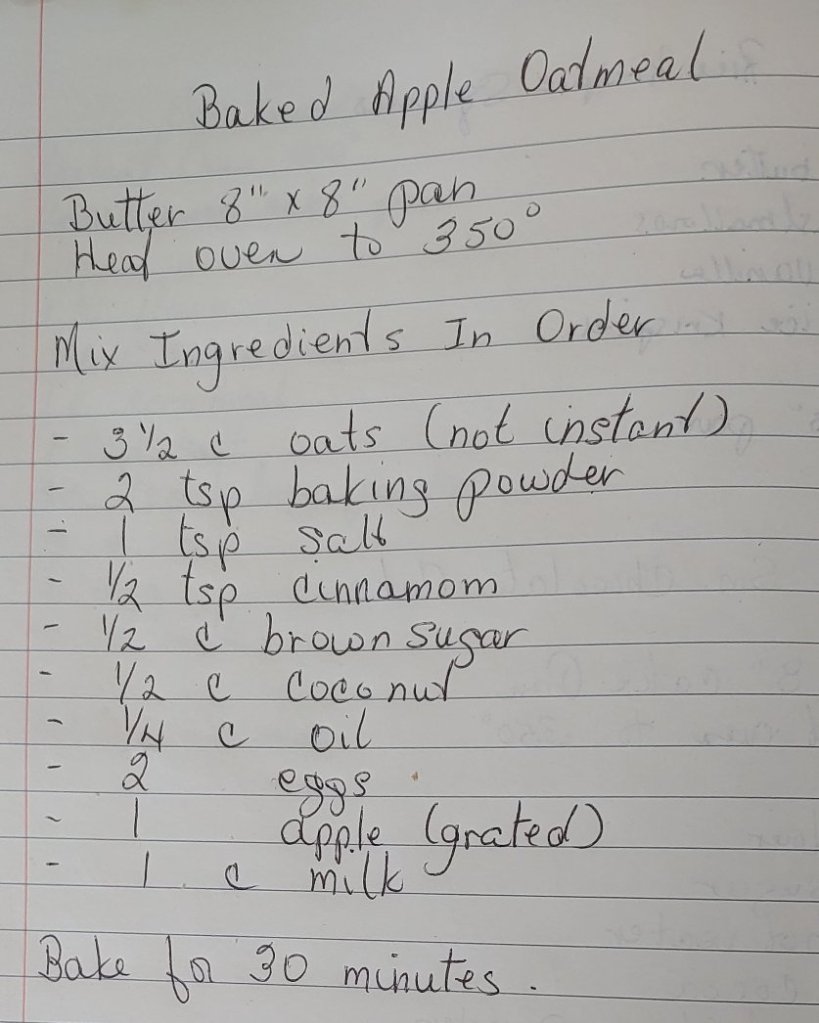 Baked Apple Oatmeal
Butter 8" x 8" pan
Heat oven to 350°
Mix Ingredients In Order
- 3 1/2 c oats (not instant)
- 2 tsp baking powder
- 1 tsp salt
- 1/2 tsp cinnamom
- 1/2 c brown sugar
- 1/2 c coconut
- 1/4 c oil
- 2 eggs
- 1 apple (grated)
- 1 c milk
Bake for 30 minutes.